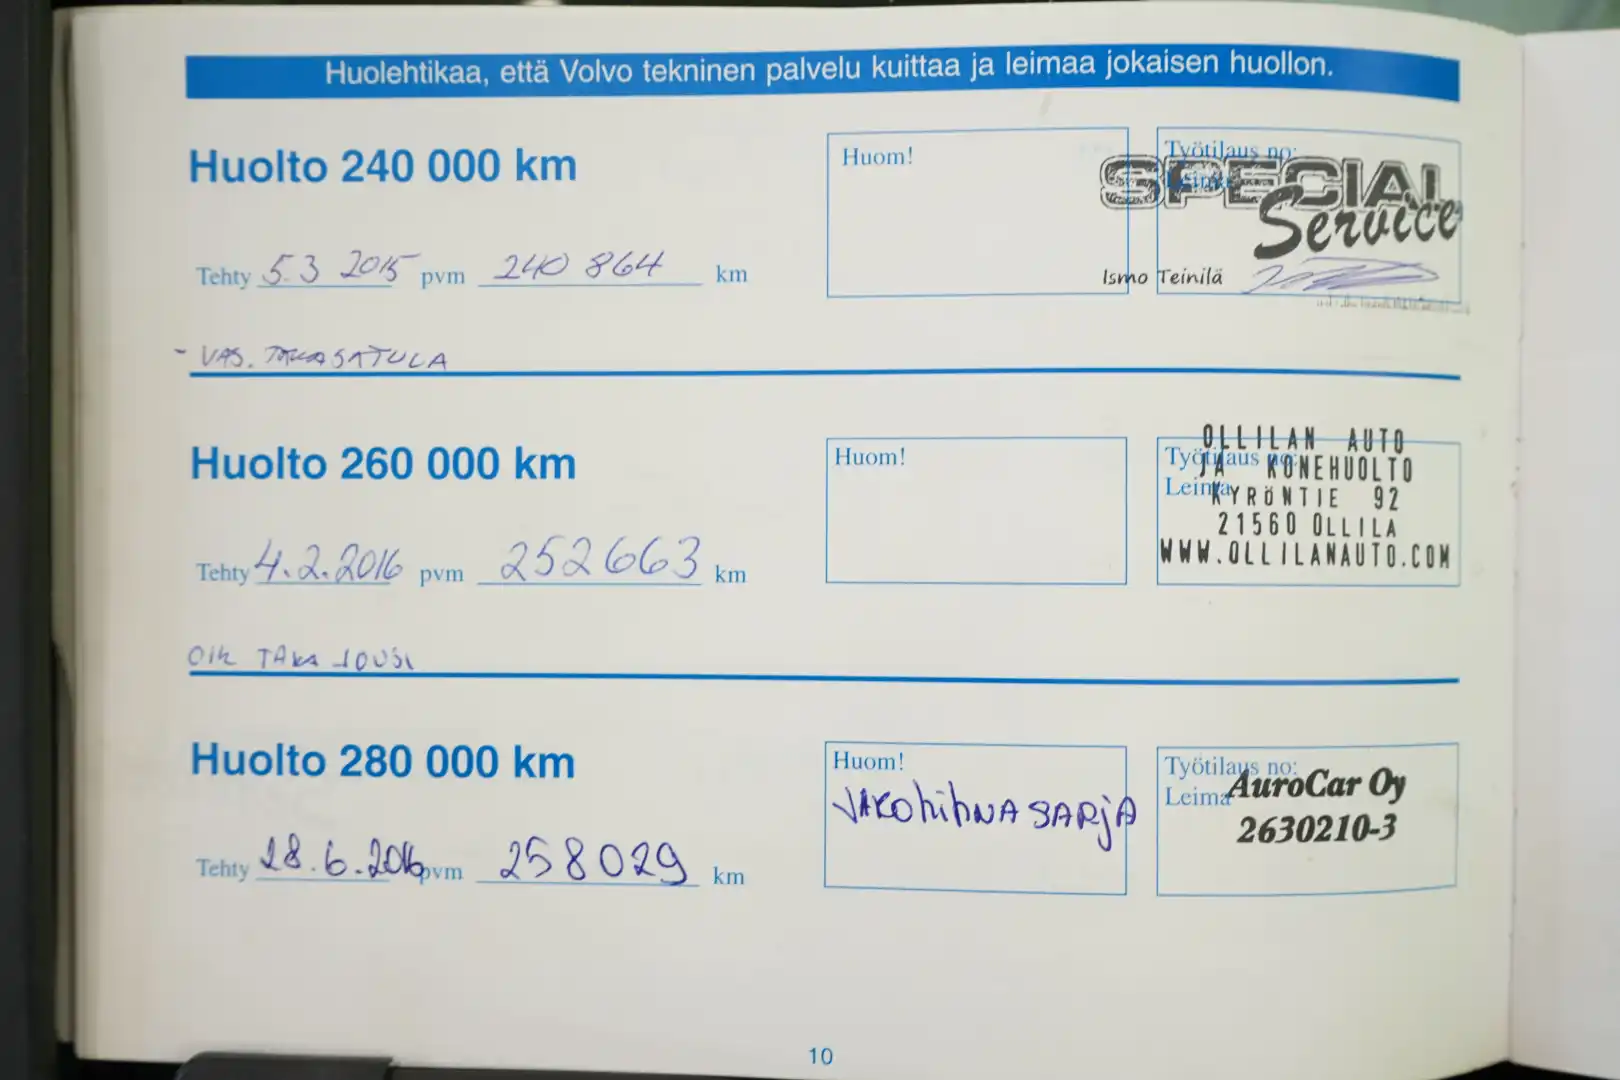 Huolehtikaa, että Volvo tekninen palvelu kuittaa ja leimaa jokaisen huollon.
Huolto 240 000 km
Huom!
Työtilaus no:
Leima
SPECIAL
Service
Tehty 5.3 2015 pvm 240 864 km
Ismo Teinilä
- VAS. TAKASATULA
Huolto 260 000 km
Huom!
Työtilaus no:
Leima
OLLILAN AUTO
JA KONEHUOLTO
KYRÖNTIE 92
21560 OLLILA
WWW.OLLILANAUTO.COM
Tehty 4.2.2016 pvm 252663 km
OIK TAKA JOUSI
Huolto 280 000 km
Huom!
JAKOhihNA SARjA
Työtilaus no:
Leima
AuroCar Oy
2630210-3
Tehty 28.6.2016 pvm 258029 km
10